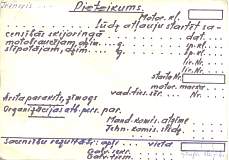 Treneris
Pieteikums.
Motor. kl.
Lūdz atļauju startēt sa-
censībās skijoringā dat.
motobraucējam, dzim. g. sp. kl.
slēpotājam, dzim. g. sp. kl.
lic. Nr.
lic. Nr.
starta Nr.
motor. marka
vad. ties. sēr. Nr.
Ārsta paraksts, zīmogs
Organizācijas atb. pers. par.
Mand. komis. atzīme
Tehn. komis. slēdz.
Sacensību rezultāti: apļi vieta
Galv. sekr.
Galv. ties.